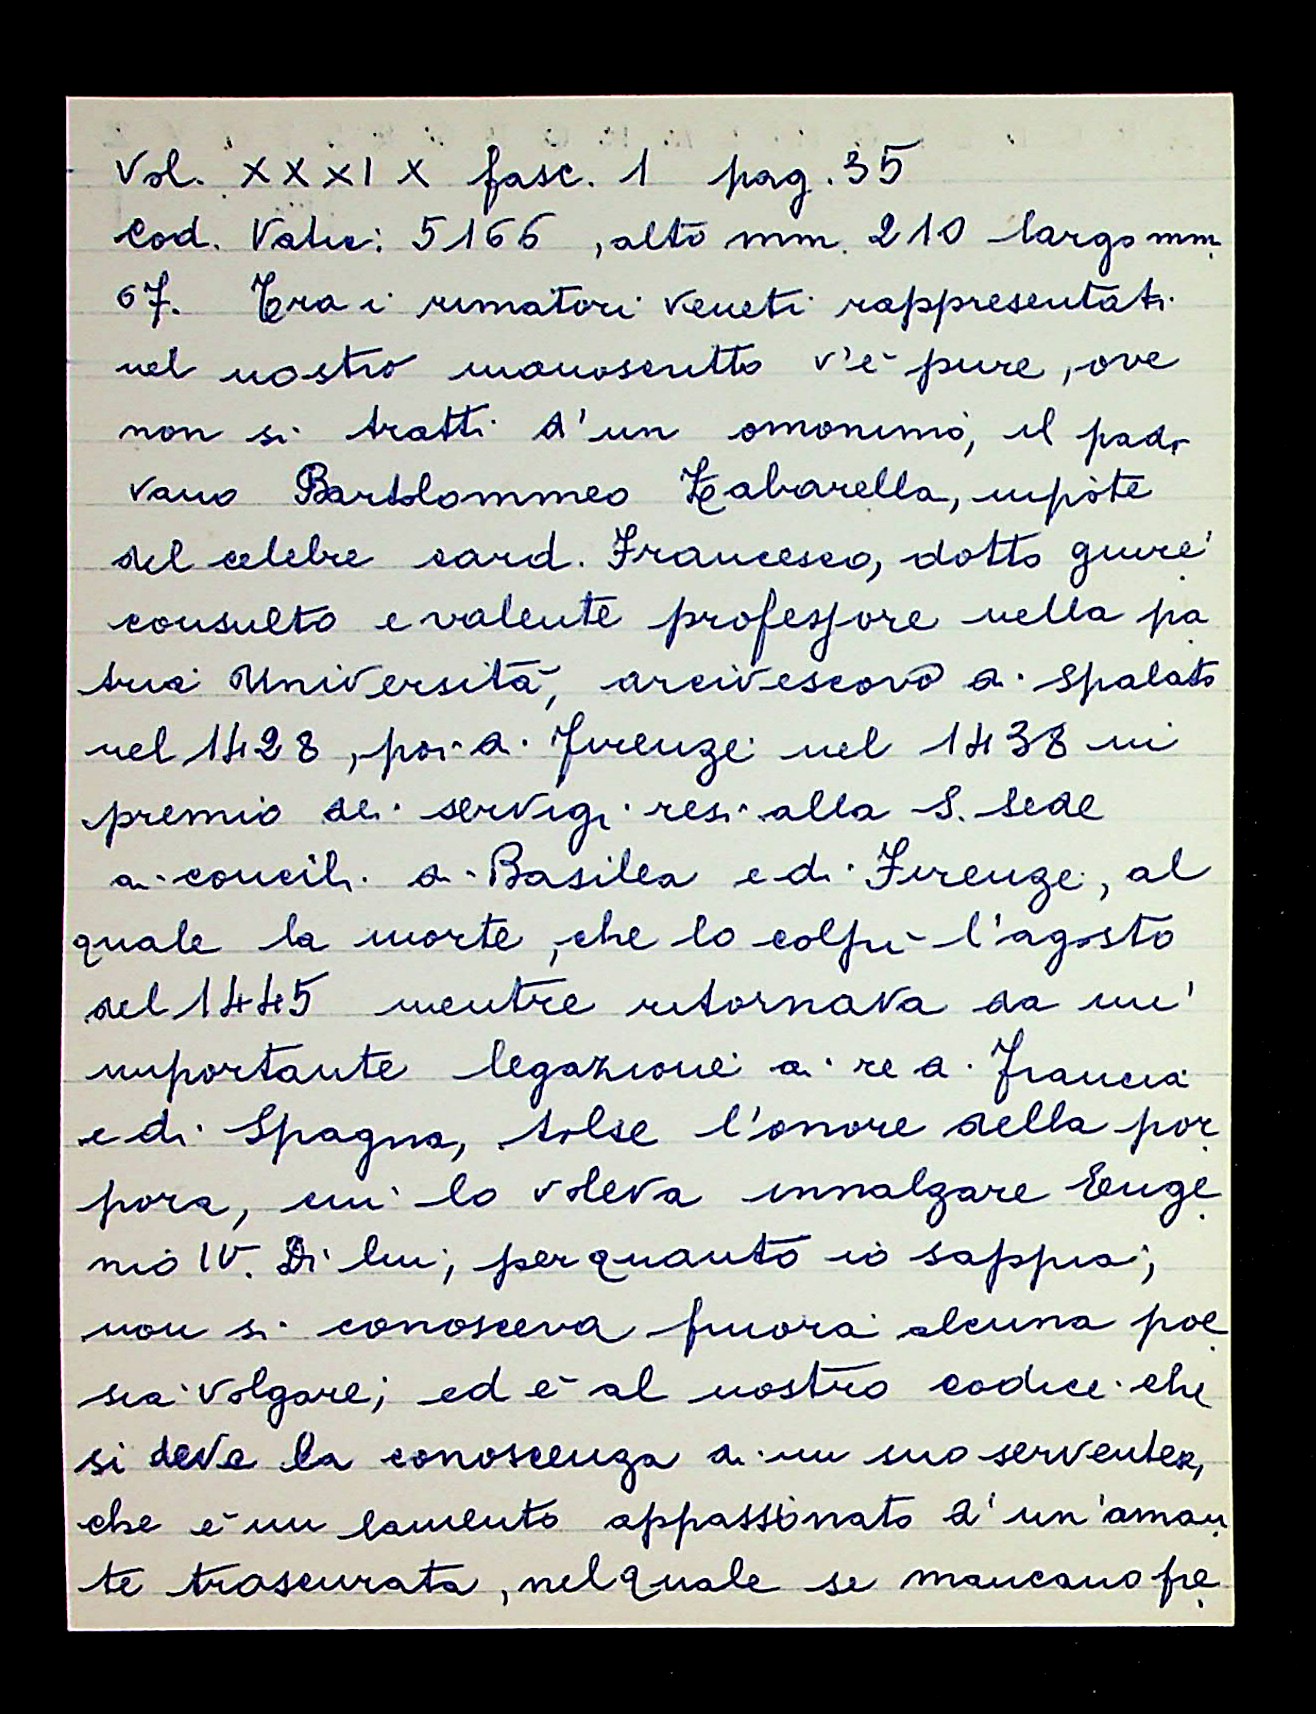 Vol. XXXIX fasc. 1 pag. 35
Cod. Vatic: 5166, alto mm. 210 largo mm.
67. Tra i rimatori veneti rappresentati
nel nostro manoscritto v'è pure, ove
non si tratti d'un omonimo, il pado
vano Bartolommeo Zabarella, nipote
del celebre card. Francesco, dotto giure
consulto e valente professore nella pa
tria Università, arcivescovo di Spalato
nel 1428, poi di Firenze nel 1438 in
premio dei servigi resi alla S. Sede
ai concili di Basilea e di Firenze, al
quale la morte, che lo colpì l'agosto
del 1445 mentre ritornava da un'
importante legazione ai re di Francia
e di Spagna, tolse l'onore della por
pora, cui lo voleva innalzare Euge
nio IV. Di lui, per quanto io sappia,
non si conosceva finora alcuna poe
sia volgare; ed è al nostro codice che
si deve la conoscenza di un suo serventese,
che è un lamento appassionato d'un'aman
te trascurata, nel quale se mancano fre